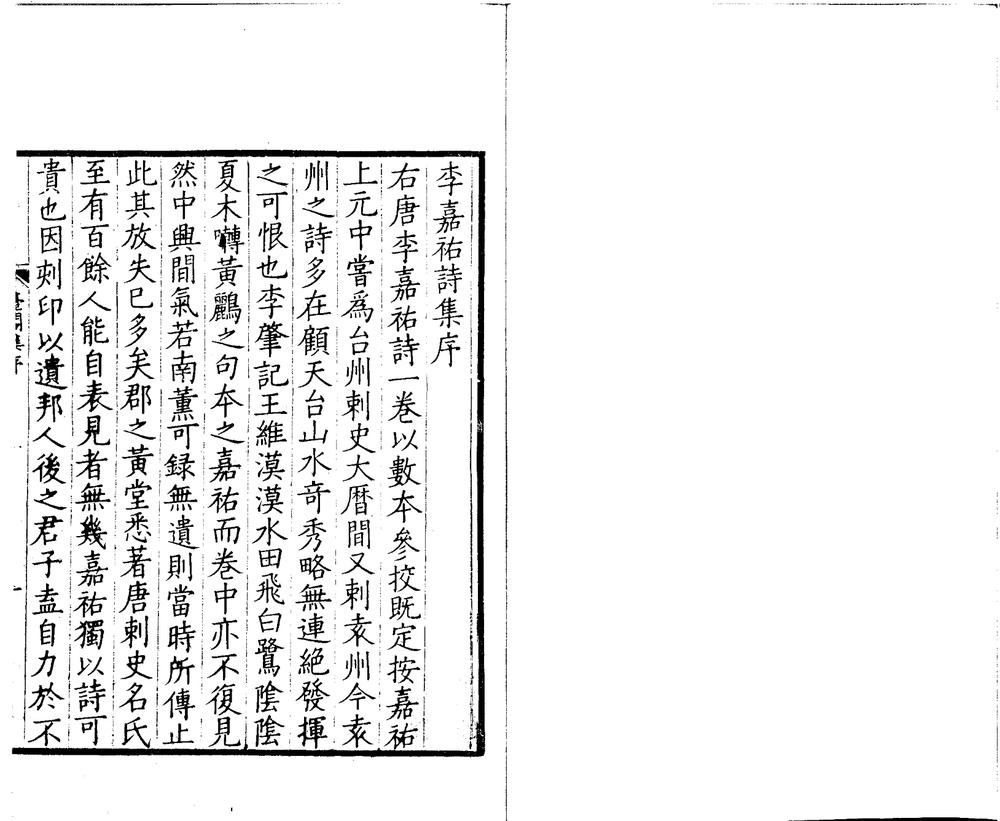 李嘉祐詩集序
右唐李嘉祐詩一卷以數本參挍既定按嘉祐
上元中嘗爲台州刺史大曆間又刺袁州今袁
州之詩多在顧天台山水奇秀略無連絕發揮
之可恨也李肇記王維漠漠水田飛白鷺陰陰
夏木囀黃鸝之句本之嘉祐而卷中亦不復見
然中興間氣若南薰可録無遺則當時所傳止
此其放失已多矣郡之黃堂悉著唐刺史名氏
至有百餘人能自表見者無幾嘉祐獨以詩可
貴也因刻印以遺邦人後之君子盍自力於不
臺閣集序
一